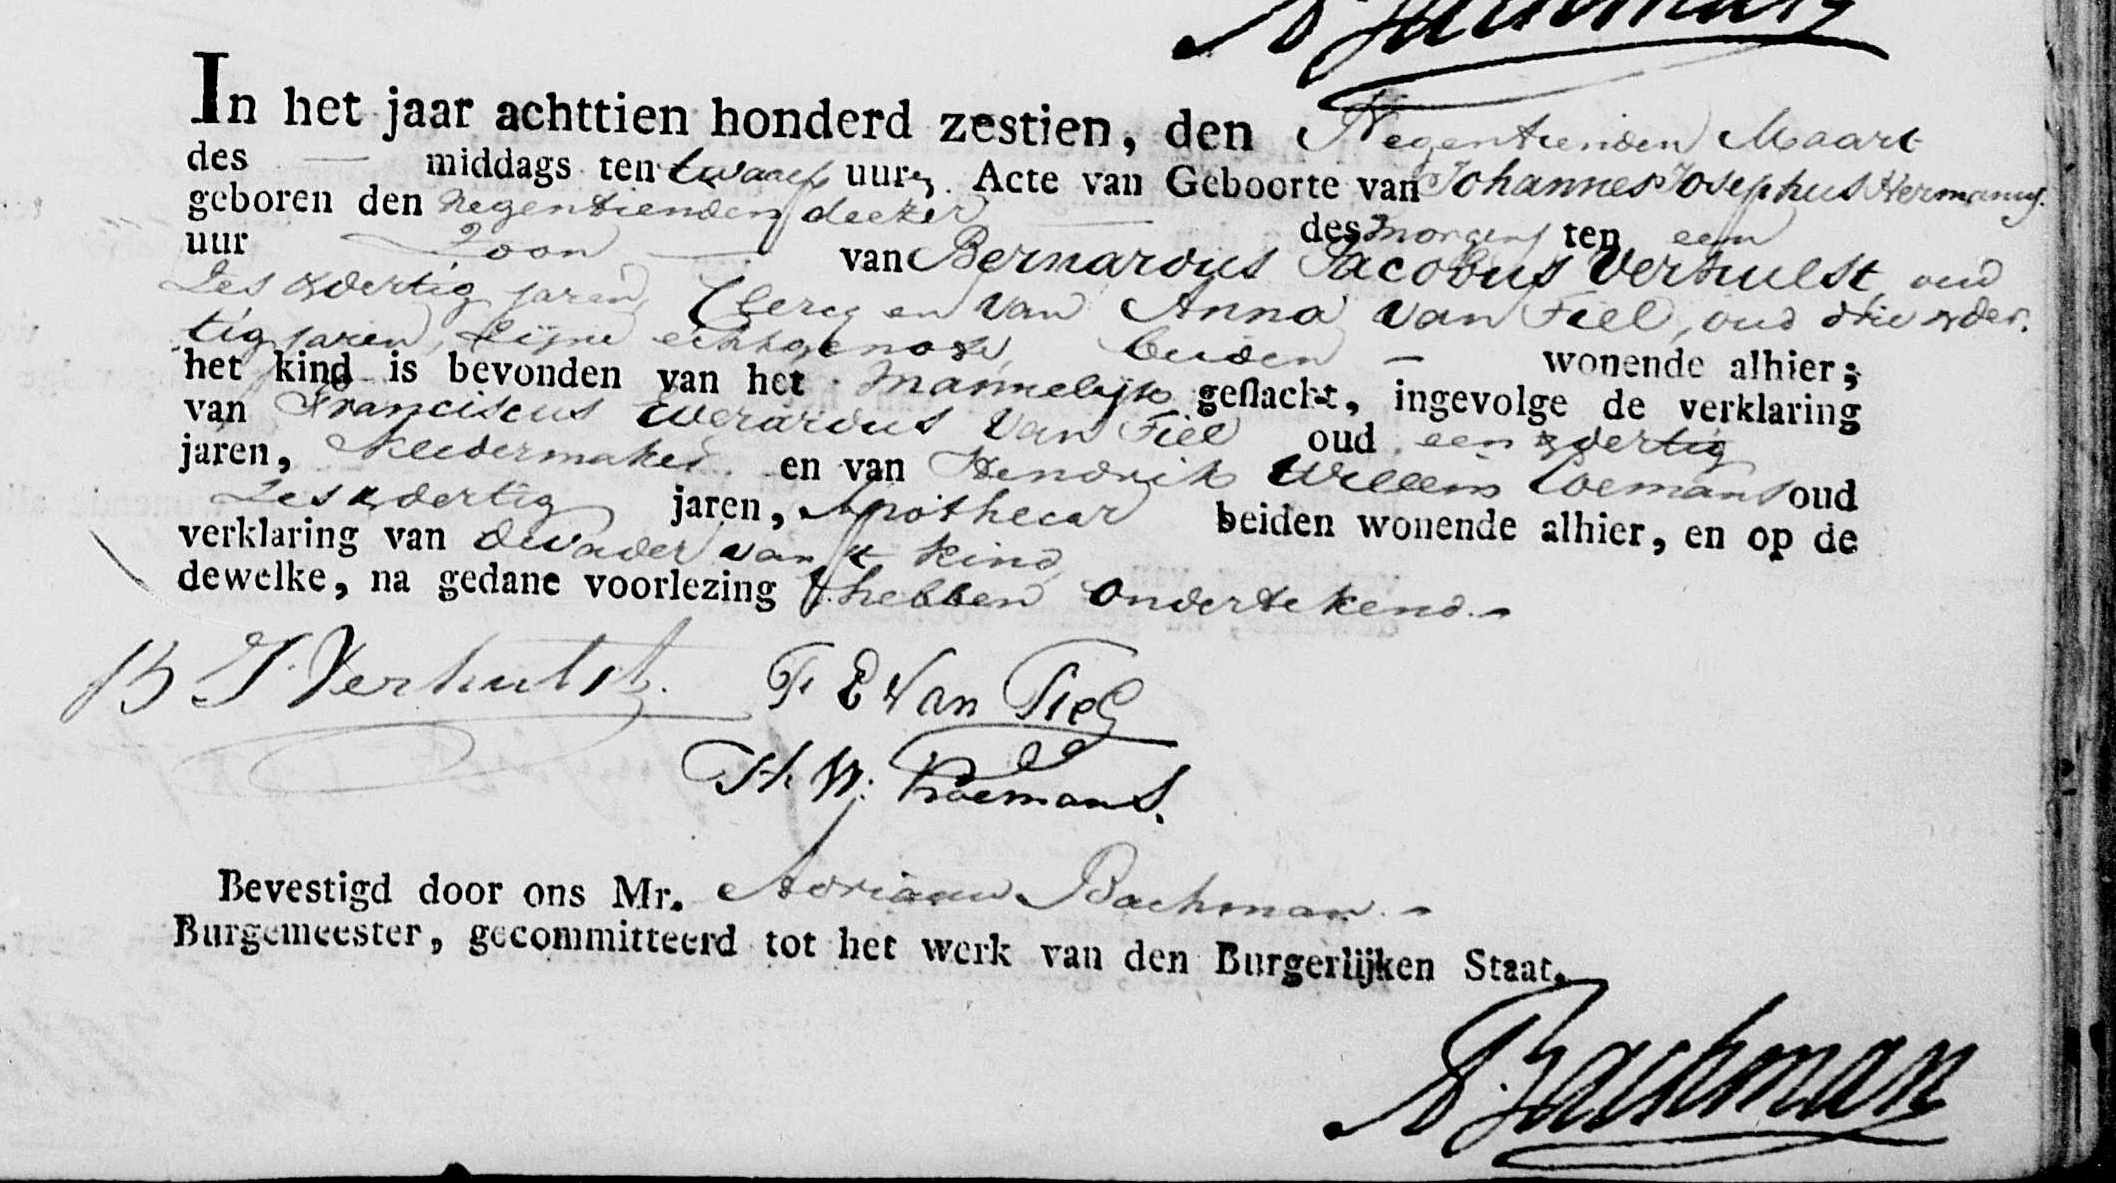 In het jaar achttien honderd zestien, den Negentienden Maart
des — middags ten twaalf uur, Acte van Geboorte van Johannes Josephus Hermanus
geboren den negentienden deezer — des morgens ten een
uur — Zoon — van Bernardus Jacobus Verhulst oud
Zes & dertig jaren, Clercq en van Anna van Tiel, oud drie & der-
tig jaren, zijne echtgenote, beiden — wonende alhier;
het kind is bevonden van het Mannelijk geslacht, ingevolge de verklaring
van Franciscus Everardus van Tiel oud een & dertig
jaren, Kleedermaker en van Hendrik Willem Coemans oud
Zes & dertig jaren, Apothecar beiden wonende alhier, en op de
verklaring van de vader van 't kind
dewelke, na gedane voorlezing hebben ondertekend. –
B J Verhulst. F E Van Tiel
H. W. Koemans.
Bevestigd door ons Mr. Adriaan Bachman. –
Burgemeester, gecommitteerd tot het werk van den Burgerlijken Staat.
A. Bachman